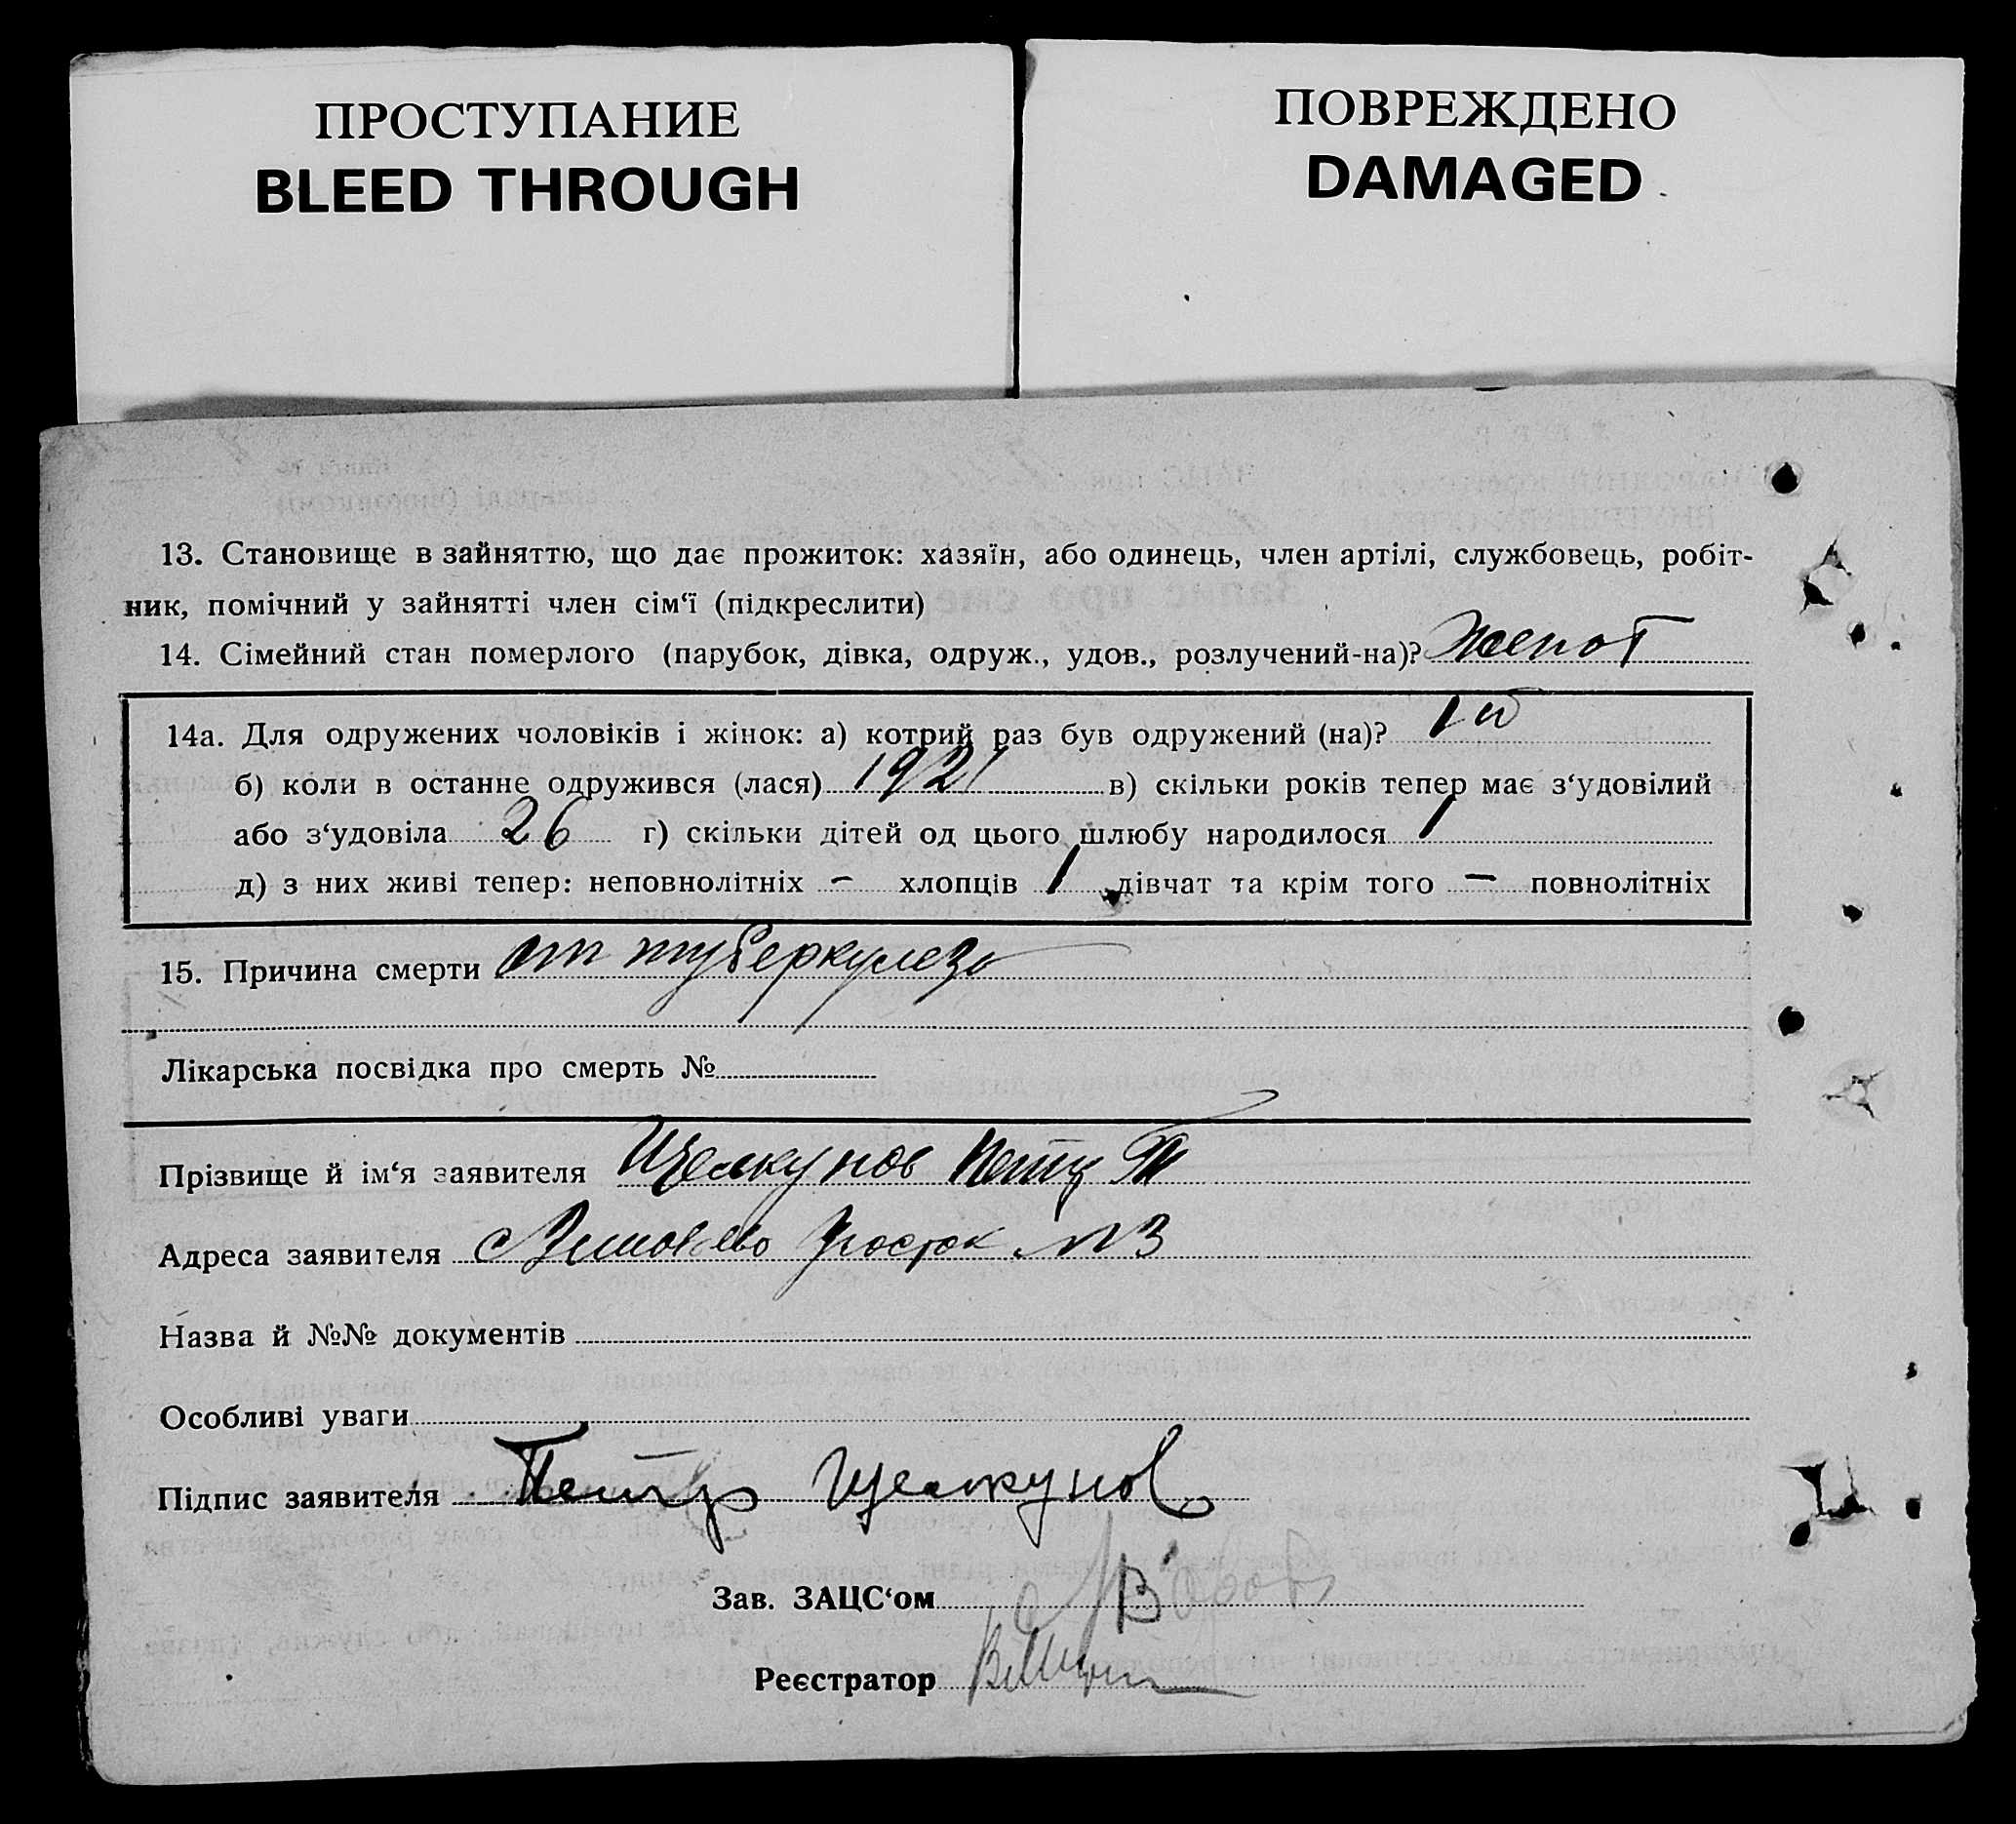 ПРОСТУПАНИЕ
BLEED THROUGH
ПОВРЕЖДЕНО
DAMAGED
13. Становище в зайняттю, що дає прожиток: хазяїн, або одинець, член артілі, службовець, робіт-
ник, помічний у зайнятті член сім‘ї (підкреслити)
14. Сімейний стан померлого (парубок, дівка, одруж., удов., розлучений-на)? женат
14а. Для одружених чоловіків і жінок: а) котрий раз був одружений (на)? 1 й
б) коли в останне одружився (лася) 1921 в) скільки років тепер має з‘удовілий
або з‘удовіла 26 г) скільки дітей од цього шлюбу народилося 1
д) з них живі тепер: неповнолітніх — хлопців 1 дівчат та крім того — повнолітніх
15. Причина смерти от туберкулеза
Лікарська посвідка про смерть №
Прізвище й ім‘я заявителя Щелкунов Петр
Адреса заявителя № 3
Назва й №№ документів
Особливі уваги
Підпис заявителя Петр Щелкунов
Зав. ЗАЦС‘ом
Реєстратор